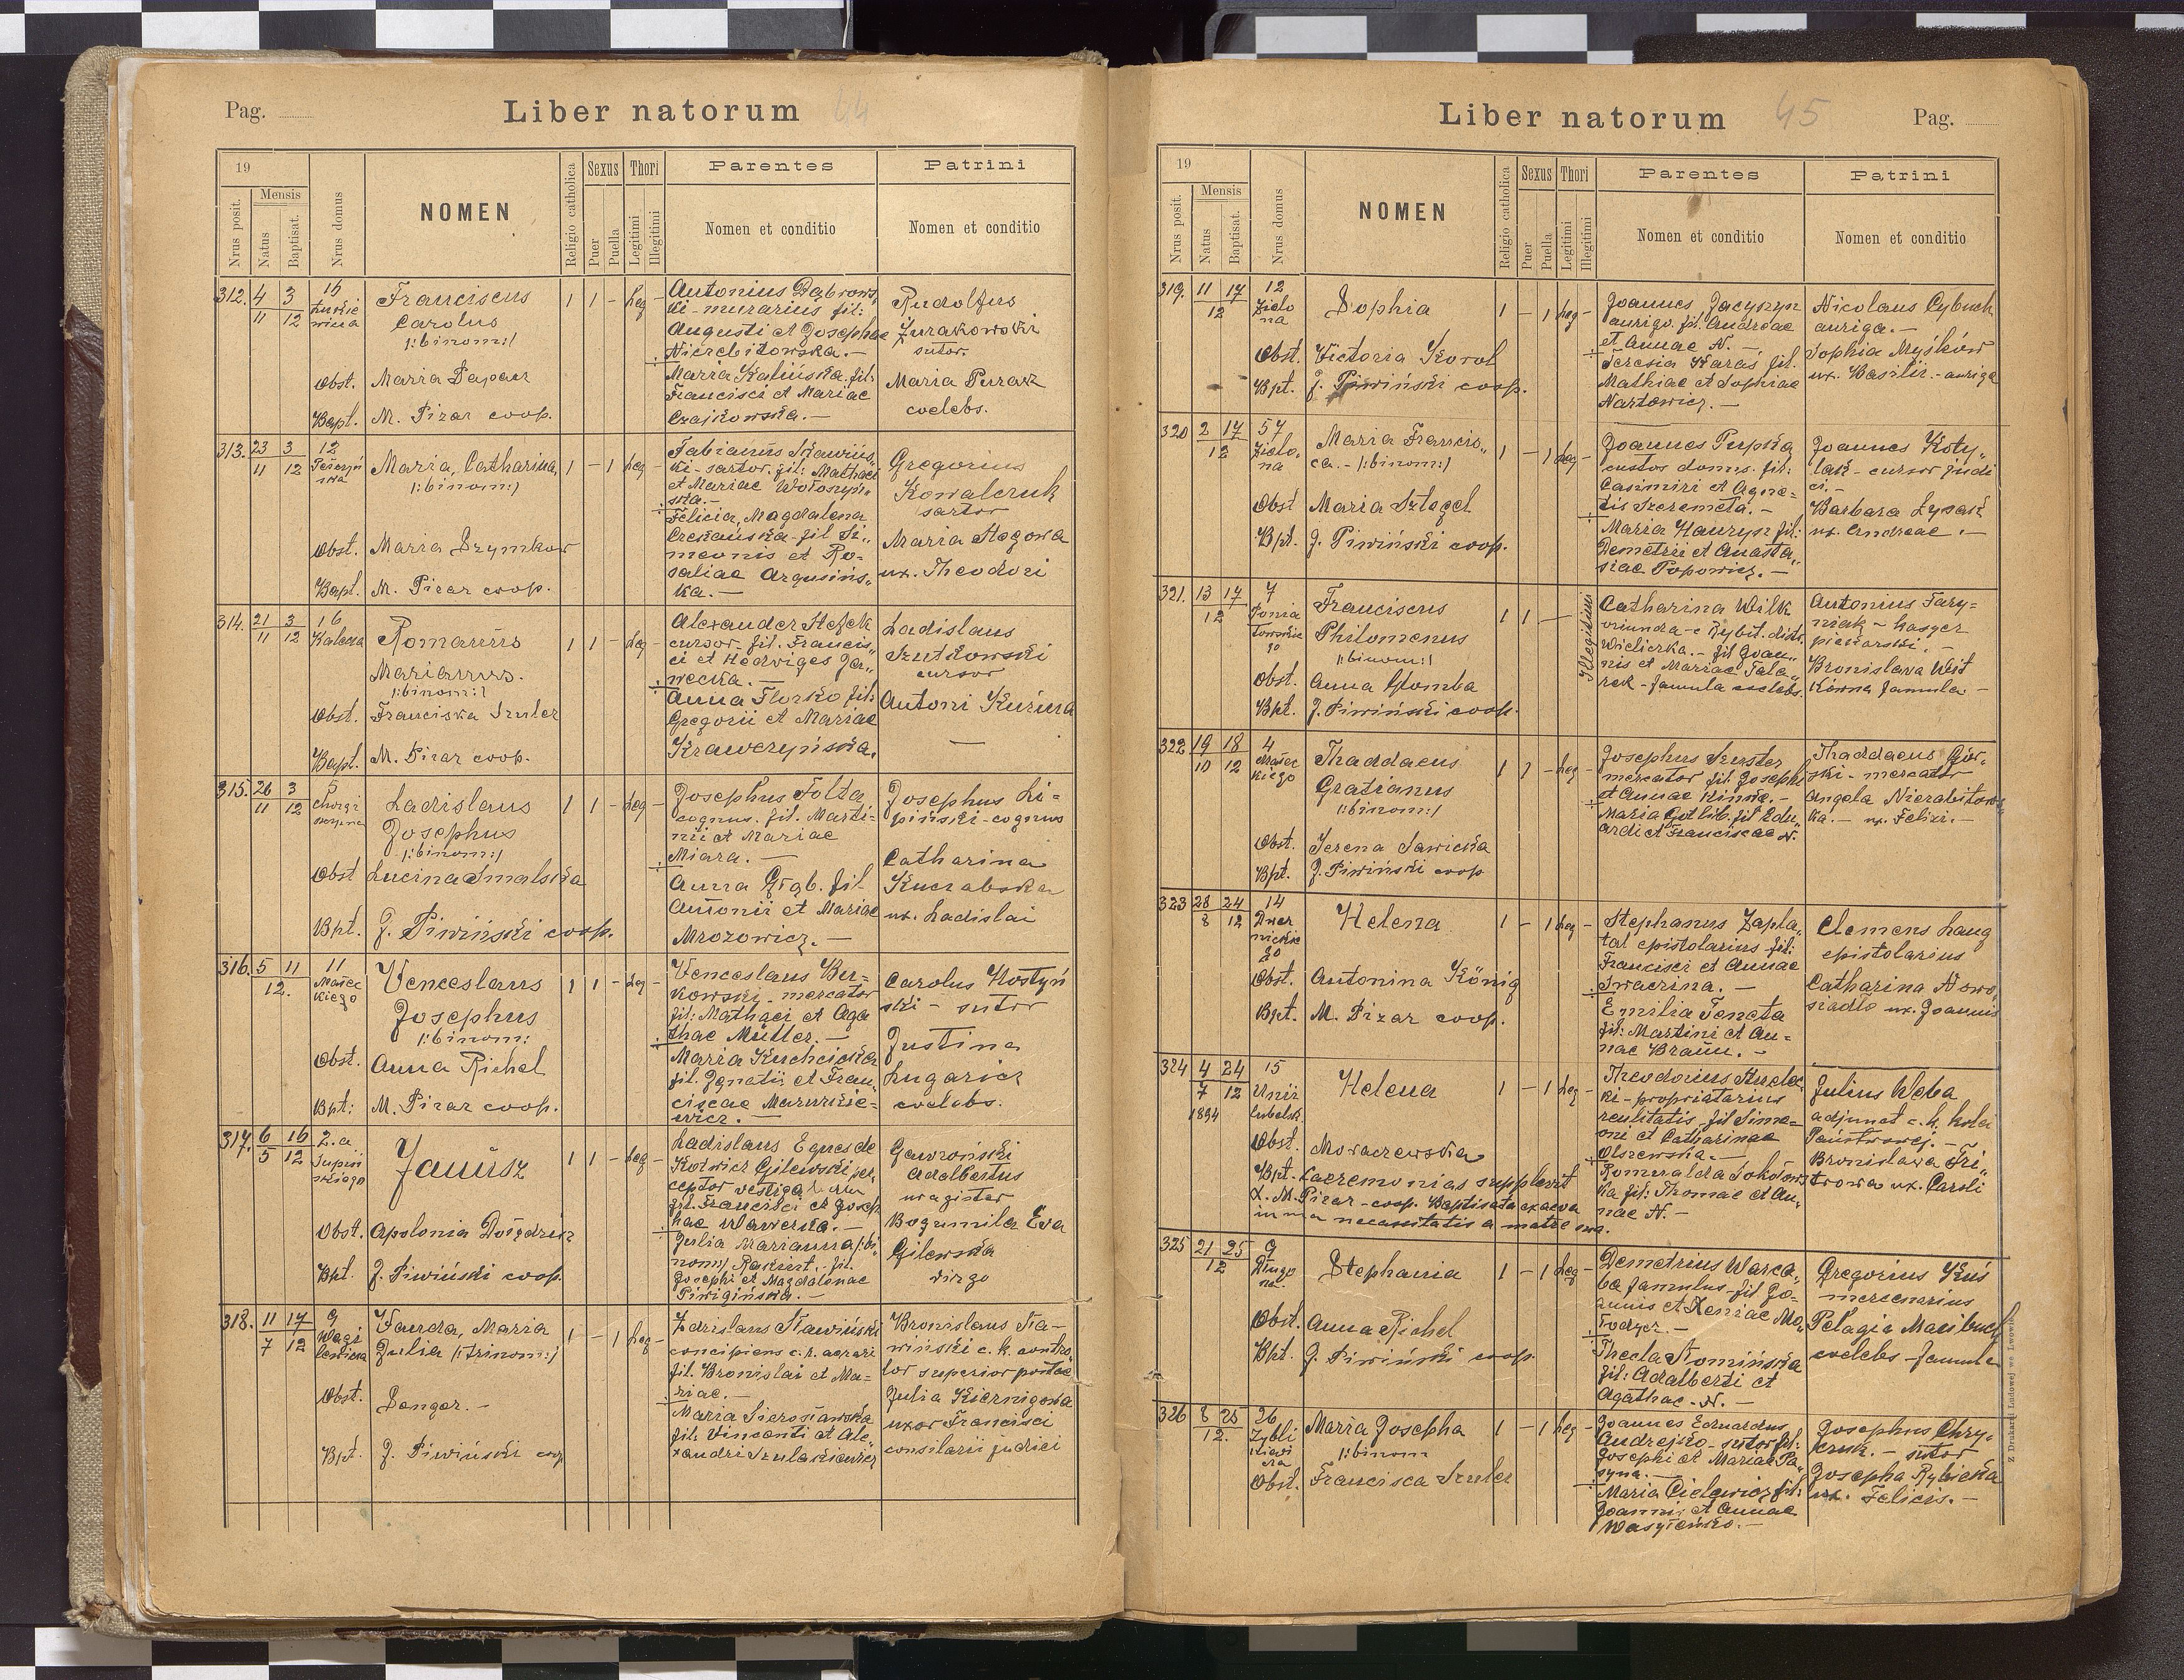 Pag.
Liber natorum
44
19
Mensis
Nrus posit.
Natus
Baptisat.
Nrus domus
NOMEN
Religio catholica
Sexus
Puer
Puella
Thori
Legitimi
Illegitimi
Parentes
Nomen et conditio
Patrini
Nomen et conditio
312. 4/11 3/12 15
Franciscus
Carolus
/:binom:/
1 1 - Leg -
Obst. Maria
Bapt. M. Pizar coop.
Antonius Dąbrows,,
ki - murarius fil:
Augusti et Josephae
Nierebitowska. -
Maria Kalińska fil:
Francisci et Mariae
Czajkowska. -
Rudolfus
Żurakowski
sutor.
Maria Purak
coelebs.
313. 23/11 3/12 12
Maria, Catharina,
/:binom:/
1 - 1 Leg -
Obst. Maria Szymkow
Bapt. M. Pizar coop.
Fabianus
ki - sartor. fil: Mathaei
et Mariae Wołoszyń,,
ska. -
Felicia, Magdalena
fil Si,,
meonis et Ro-
saliae Argusińs,,
ka. -
Gregorius
Kowalczuk
sartor
Maria Stogowa
ux. Theodori
314. 21/11 3/12 16
Kalecza
Romanus
Marianus.
/:binom:/
1 1 - Leg -
Obst. Franciska Szuler
Bapt. M. Pizar coop.
Alexander Stefek
cursor - fil. Francis,,
ci et Hedviges Ja,,
necka. -
Anna Florko fil:
Gregorii et Mariae
Krawczyńska.
Ladislaus
Szutkowski
cursor
Antoni Kuźma
-
315. 26/11 3/12
Ladislaus
Josephus
/:binom:/
1 1 - Leg -
Obst Lucina Smalska
Bpt. J. Piwiński coop.
Josephus Folta
coqnus. fil. Marti-
nii et Mariae
Miara. -
Anna Grąb. fil
Antonii et Mariae
Mrozowicz. -
Josephus Li-
piński - coqnus
Catharina
Kuczabska
ux. Ladislai
316. 5 11/12. 11
Małec
kiego
Venceslaus
Josephus
/:binom:
1 1 - Leg -
Obst. Anna Richel
Bpt: M. Pizar coop.
Venceslaus Bur-
kowski - mercator
fil: Mathaei et Aga
thae Müller. -
Maria Kuchcicka
fil. Ignatii et Fran,
ciscae Mazurkie-
wicz. -
Carolus Kostyń
ski - sutor
Justina
Lugaricz
coelebs.
317. 6/5 16/12 2.a
Supiń
skiego
Janusz
1 1 - Leg -
Obst. Apolonia
Bpt. J. Piwiński coop.
Ladislaus Eques de
Kotwicz Gilewski per,
ceptor
fil. Francisci et Josep
hae Wawerka. -
Julia Marianna /:bi,
nom:/ fil.
Josephi et Magdalenae
-
Gawroński
Adalbertus
magister
Bogumila Eva
Gilewska
virgo
318. 11/7 17/12 9
Wagi
lewicza
Vanda, Maria
Julia /:trinom:/
1 - 1 Leg -
Obst. Senger. -
Bpt. J. Piwiński coop
Zdzislaus Nawiński
concipiens c. k. aerari
fil. Bronislai et Ma-
riae. -
Maria Sierosławska
fil: Vincenti et Ale,
xandri Szulakiewicz
Bronislaus Na-
wiński c. k. contro,
lor superior postae
Julia Kiernigowa
uxor Francisci
consilarii judici
Liber natorum
45
Pag.
19
Mensis
Nrus posit.
Natus
Baptisat.
Nrus domus
NOMEN
Religio catholica
Sexus
Puer
Puella
Thori
Legitimi
Illegitimi
Parentes
Nomen et conditio
Patrini
Nomen et conditio
319. 11 17/12 12
Zielo
na
Sophia
1 - 1 Leg -
Obst. Victoria Korol
Bpt. J. Piwiński coop.
Joannes Jacyszyn
auriga. fil. Andreae
et Annae N. -
Teresia Karaś fil.
Mathiae et Sophiae
Nartowicz. -
Nicolaus Cybuch
auriga. -
Sophia Myśków
ux. Basilii. - auriga
320 2 17/12 57
Zielo,
na
Maria Francis,,
ca. - /:binom:/
1 - 1 Leg -
Obst Maria Sztogel
Bpt. J. Piwiński coop.
Joannes Pupka
custos domus. fil:
Casimiri et Agne-
tis Szeremeta. -
Maria Haurysz fil:
Demetrii et Anasta,,
siae Popowicz. -
Joannes Koty,,
lak - cursor judi
ci. -
Barbara Lysak
ux. Andreae. -
321. 13 17/12 7
Ponia
towskie
go
Franciscus
Philomenus
/:binom:/
1 1 -
Illegitimus
Obst. Anna Głomba
Bpt. J. Piwiński coop.
Catharina Wilk
oriunda - e Rybit. distr.
Wieliczka. - fil Joan,,
nis et Mariae Tala,,
rek - famula coelebs.
Antonius Tary-
niak - Kasyer
piekarski. -
Bronislawa Wit
kówna famula -
322 19/10 18/12 4
Małec
kiego
Thaddaeus
Gratianus
/:binom:/
1 1 - Leg -
Obst. Serena Sawicka
Bpt. J. Piwiński coop
Josephus Szuster
mercator fil Josephi
et Annae Kinka. -
Maria Gotlib. fil Edu,
ardi et Franciscae N.
Thaddaeus Gór,,
ski - mercator
Angela Nierabitow
ka. - ux. Felixi. -
323 28/8 24/12 14
Dwer
nickie
go
Helena
1 - 1 Leg -
Obst. Antonina König
Bpt. M. Pizar coop.
Stephanus Zapła,,
tał epistolarius - fil:
Francisci et Annae
Swaczina. -
Emilia Teneta
fil: Martini et An-
nae Braun. -
Clemens Laug
epistolarius
Catharina Nowo,
siadło ux. Joannis
324 4/7 24/12 15
1894
Unii
lubelsk.
Helena
1 - 1 Leg -
Obst. Moraczewska
Bpt. Caeremonias supplevit
L. M. Pizar - coop. Baptisata ex aqua
in una necessitatis a matre sua.
Theodorius
ki - propriatarius
realitatis - fil Sime-
oni et Catharinae
Olszewska. -
Romualda Sokołows
ka fil: Thomae et An,
nae N. -
Julius Weba
adjunct c. k. kolei
Państwowej. -
Bronislawa Fri,,
trowa ux. Caroli
325 21 25/12 9
Długo
sza
Stephania
1 - 1 Leg -
Obst. Anna Richel
Bpt. J. Piwiński coop.
Demetrius Warca,,
ba famulus - fil Jo-
annis et Xeniae Mo,,
łodycz. -
Thecla Słomińska
fil: Adalberti et
Agathae. N. -
Gregorius Kuś
mercenarius
Pelagia Maribuch
coelebs - famula
326 8 25/12. 26
Zybli
kiewi
cza
Maria Josepha
/:binom
1 - 1 Leg -
Obst. Francisca Szuler
Joannes Eduardus
Andrejko - sutor fil:
Josephi et Mariae Pa,,
syna. -
Maria Cielewicz fil:
Joannis et Annae
Wasyleńko. -
Josephus Chry,
czuk. - sutor
Josepha Rybicka
ux. Felicis. -
Z Drukarni Ludowej we Lwowie.